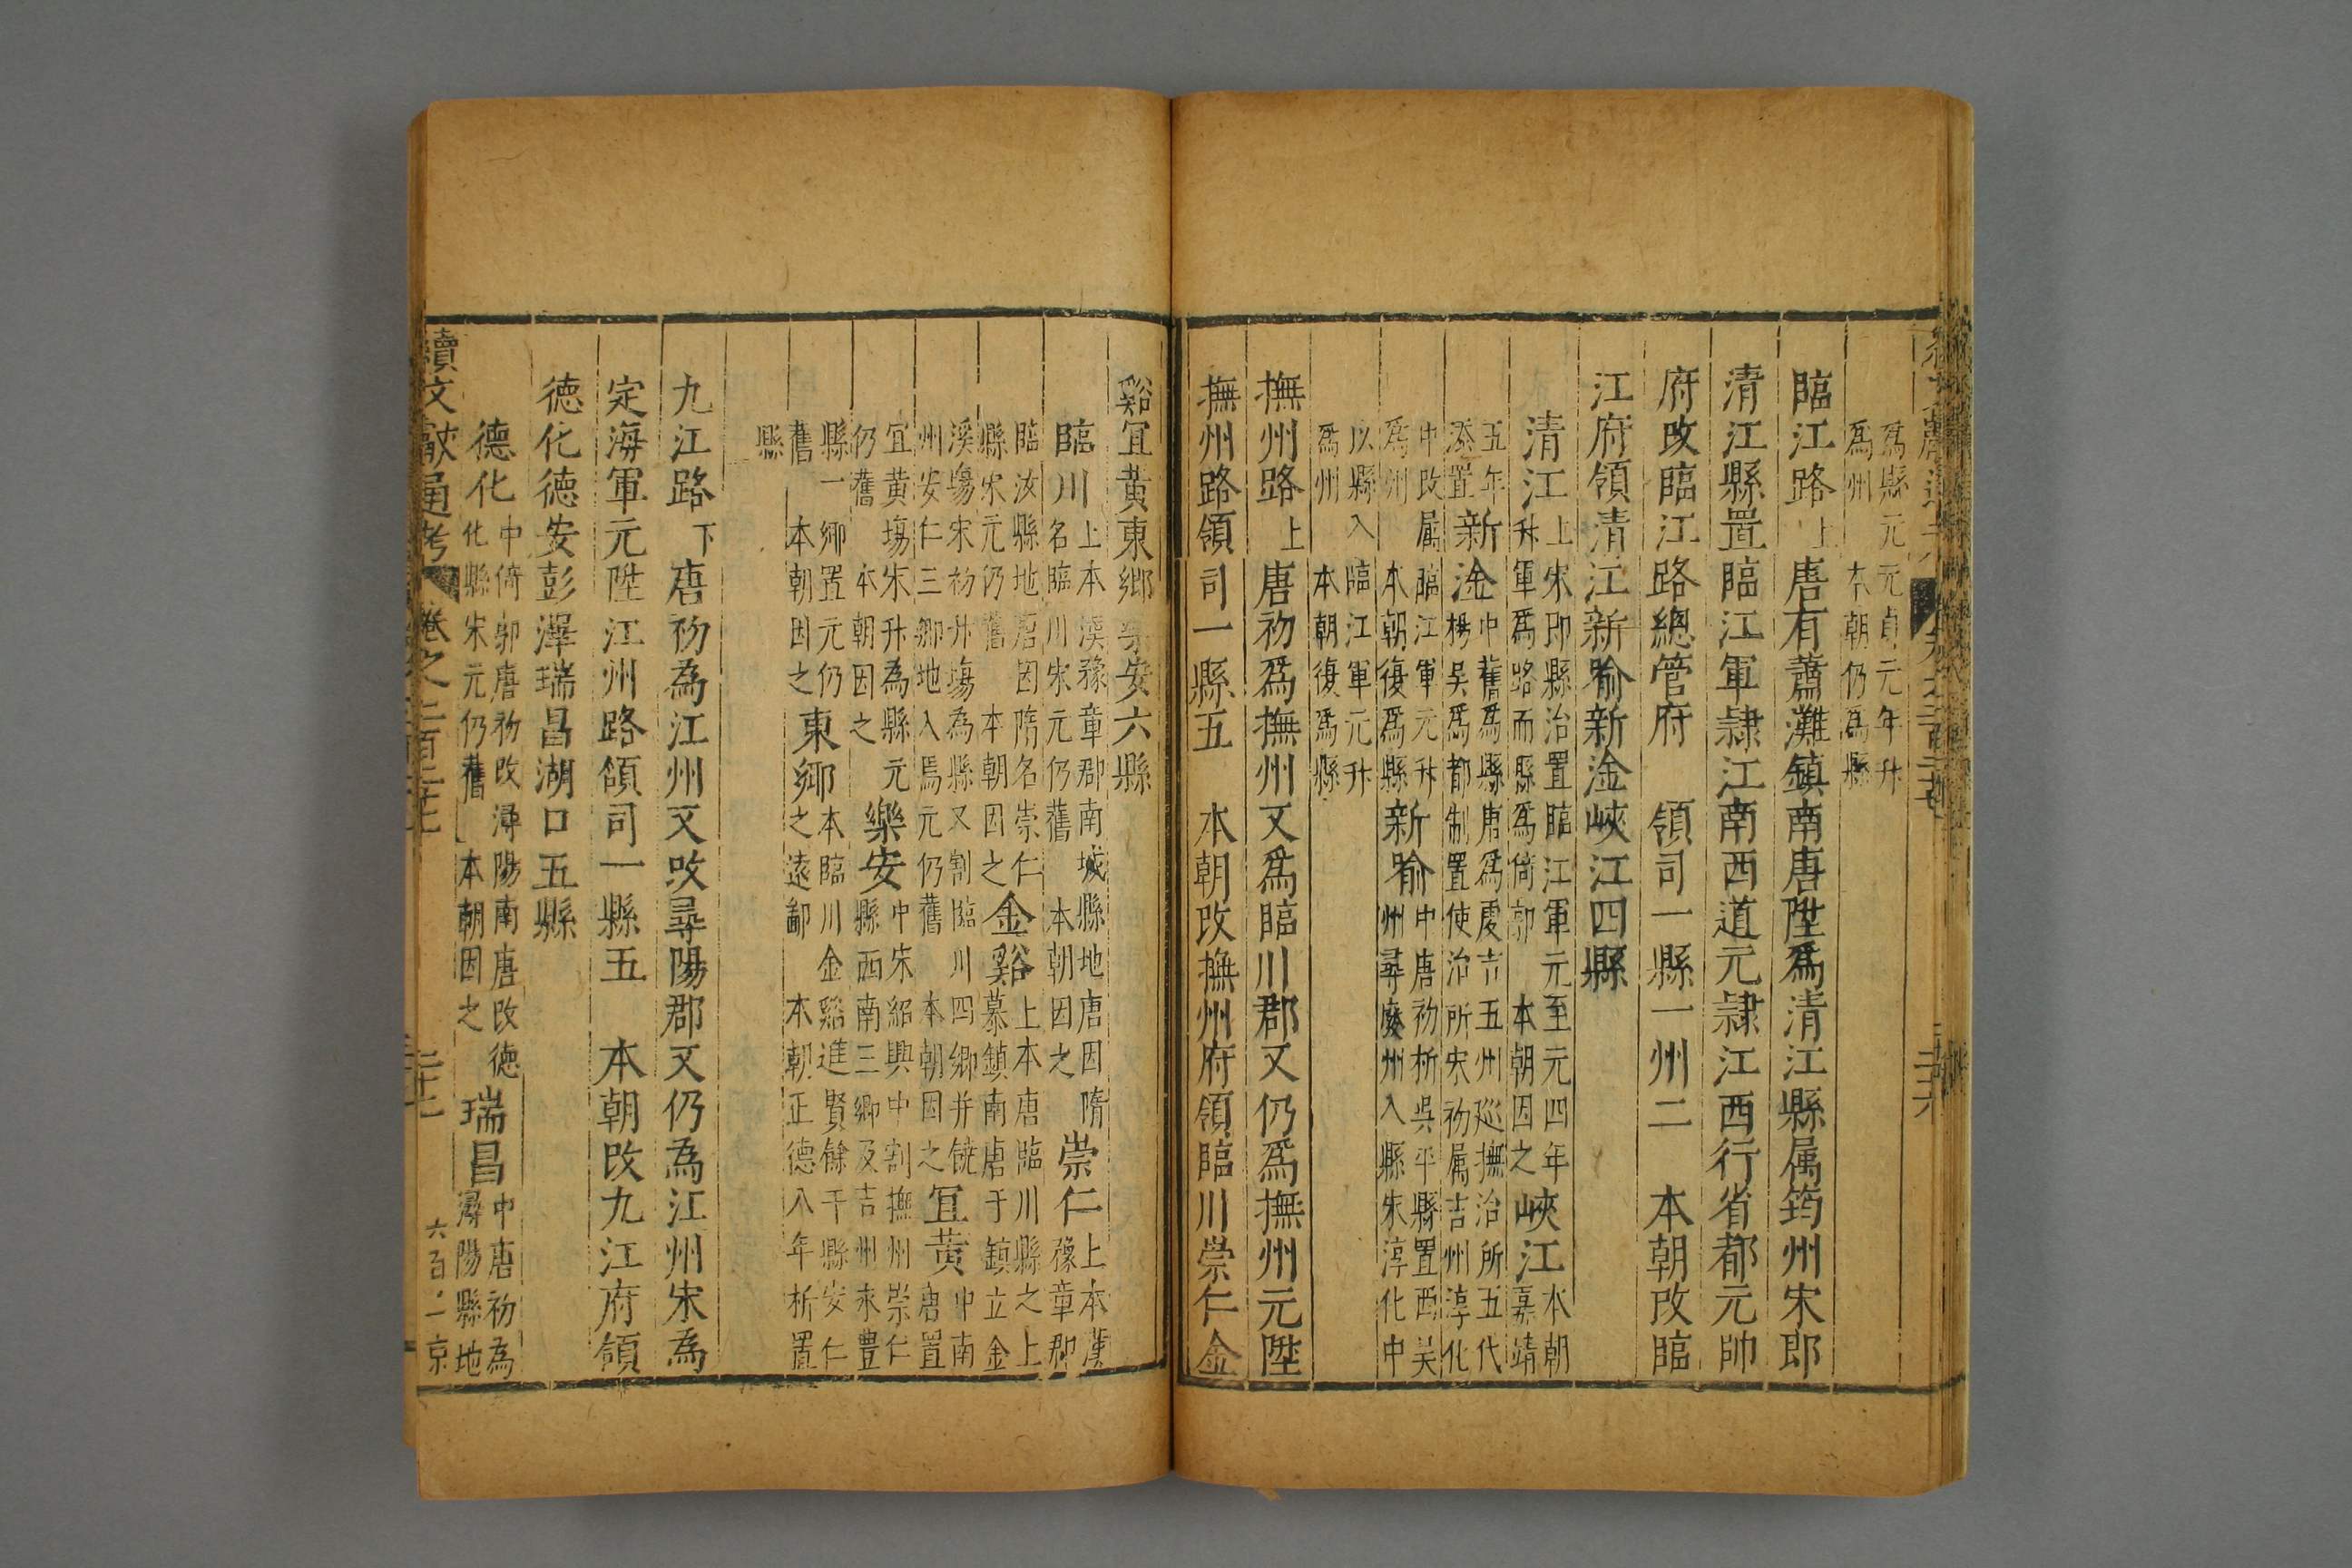 爲縣元元貞元年升
爲州 本朝仍爲縣
臨江路上唐有蕭灘鎮南唐陞爲清江縣属筠州宋郎
清江縣置臨江軍隷江南西道元隷江西行省都元帥
府改臨江路總管府 領司一縣一州二 本朝改臨
江府領清江新喻新淦峽江四縣
清江上宋即縣治置臨江軍元至元四年
升軍爲路而縣爲倚郭 本朝因之峽江本朝嘉靖
五年添置新淦中舊爲縣唐爲處吉五州廵撫治所五代
楊吳爲都制置使治所宋初属吉州淳化
中改属臨江軍元升
爲州 本朝復爲縣新喻中唐初析吳平縣置西吳
州尋廢州入縣朱淳化中
以縣入臨江軍元升
爲州 本朝復爲縣
撫州路上唐初爲撫州又爲臨川郡又仍爲撫州元陞
撫州路領司一縣五 本朝改撫州府領臨川崇仁金
谿宜黄東鄉樂安六縣
臨川上本漢豫章郡南城縣地唐因隋
名臨川宋元仍舊 本朝因之崇仁上本漢豫章郡
臨汝縣地唐因隋名崇仁
縣宋元仍舊 本朝因之金谿上本唐臨川縣之上
幕鎮南唐于鎮立金
溪塲宋初升塲為縣又割臨川四鄉并饒
州安仁三鄉地入焉元仍舊 本朝因之宜黄中南唐置
宜黄塲宋升為縣元
仍舊 本朝因之樂安中宋紹興中割撫州崇仁
縣西南三鄉及吉州永豊
縣一鄉置元仍
舊 本朝因之東鄉本臨川金谿進賢餘干縣安仁
之遠鄙 本朝正德八年析置
縣
九江路下唐初為江州又改尋陽郡又仍為江州宋為
定海軍元陞江州路領司一縣五 本朝改九江府領
德化德安彭澤瑞昌湖口五縣
德化中倚郭唐初改潯陽南唐改德
化縣宋元仍舊 本朝因之瑞昌中唐初為
潯陽縣地
續文獻通考 卷之二百二十七 二十七 六百一京